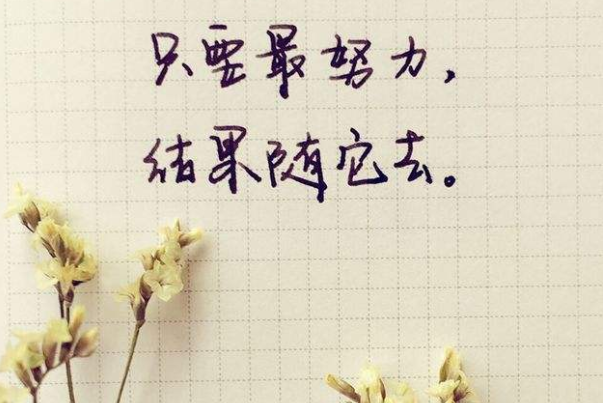 只要最努力,
结果随它去。